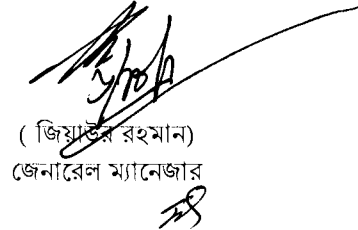 ( জিয়াউর রহমান)
জেনারেল ম্যানেজার